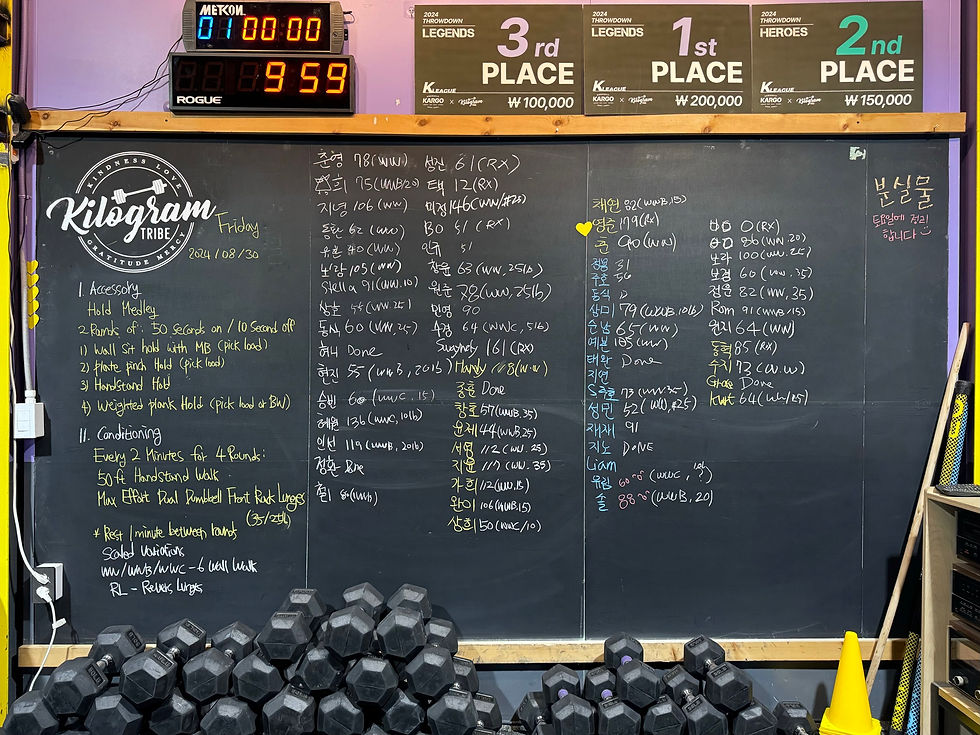 METCON
01 00:00
9 59
ROGUE
2024
THROWDOWN
LEGENDS
3rd
PLACE
K LEAGUE
KARGO × Kilogram
₩100,000
2024
THROWDOWN
LEGENDS
1st
PLACE
K LEAGUE
KARGO × Kilogram
₩200,000
2024
THROWDOWN
HEROES
2nd
PLACE
K LEAGUE
KARGO × Kilogram
₩150,000
KINDNESS LOVE
Kilogram
TRIBE
GRATITUDE
Friday
2024/08/30
I. Accessory
Hold Medley
2 Rounds of: 50 seconds on / 10 second off
1) Wall Sit hold with MB (pick load)
2) Plate pinch Hold (pick load)
3) Handstand Hold
4) Weighted plank Hold (pick load or BW)
II. Conditioning
Every 2 Minutes for 4 Rounds:
50ft Handstand Walk
Max Effort Dual Dumbbell Front Rack Lunges
(35/25lb)
* Rest 1 minute between rounds
Scaled Variations
WW/WWB/WWC - 6 Wall Walk
RL - Revers Lunges
준형 78(WW)
희 75(WWB/20)
지녕 106(WW)
동환 62(WW)
105(WW)
Stella 91(WW.10)
60(WW,25)
허니 Done
현진 55(WWB, 20lb)
승빈 60(WWC, 15)
136(WWC, 10lb)
인선 119(WWB, 20lb)
정환
성진 61(RX)
택 12(RX)
미정 146(WW/#25)
BO 51(RX)
민규 51
창윤 63(WW, 25lb)
원준 78(WW, 25lb)
민영 90
수경 64(WWC, 5lb)
161(RX)
Mandy 118(W.W)
Done
창호 57(WWB,35)
윤제 44(WWB,25)
서영 112(WW.25)
지윤 117(WW.35)
가희 112(WW,B)
완이 106(WWB,15)
상희 50(WWC/10)
채연 82(WWB,15)
영준 179(RX)
준 90(WW)
정용 31
주호 56
동식
상미 79(WWB,10lb)
순남 65(WW)
예본 105(WW)
태환 Done
지연
S주호 73(WW35)
성민 52(WW,#25)
재재 91
지노 DONE
Liam
우린 60(WWC, )
솔 88(WWB, 20)
0(RX)
86(WW.20)
노라 100(WW.25)
보경 60(WW.35)
82(WW,35)
Rom 91(WWB/15)
원지 64(WW)
동혁 85(RX)
수지 73(W.W)
Grace Done
Kurt 64(WW/25)
분실물
토요일에 정리
합니다